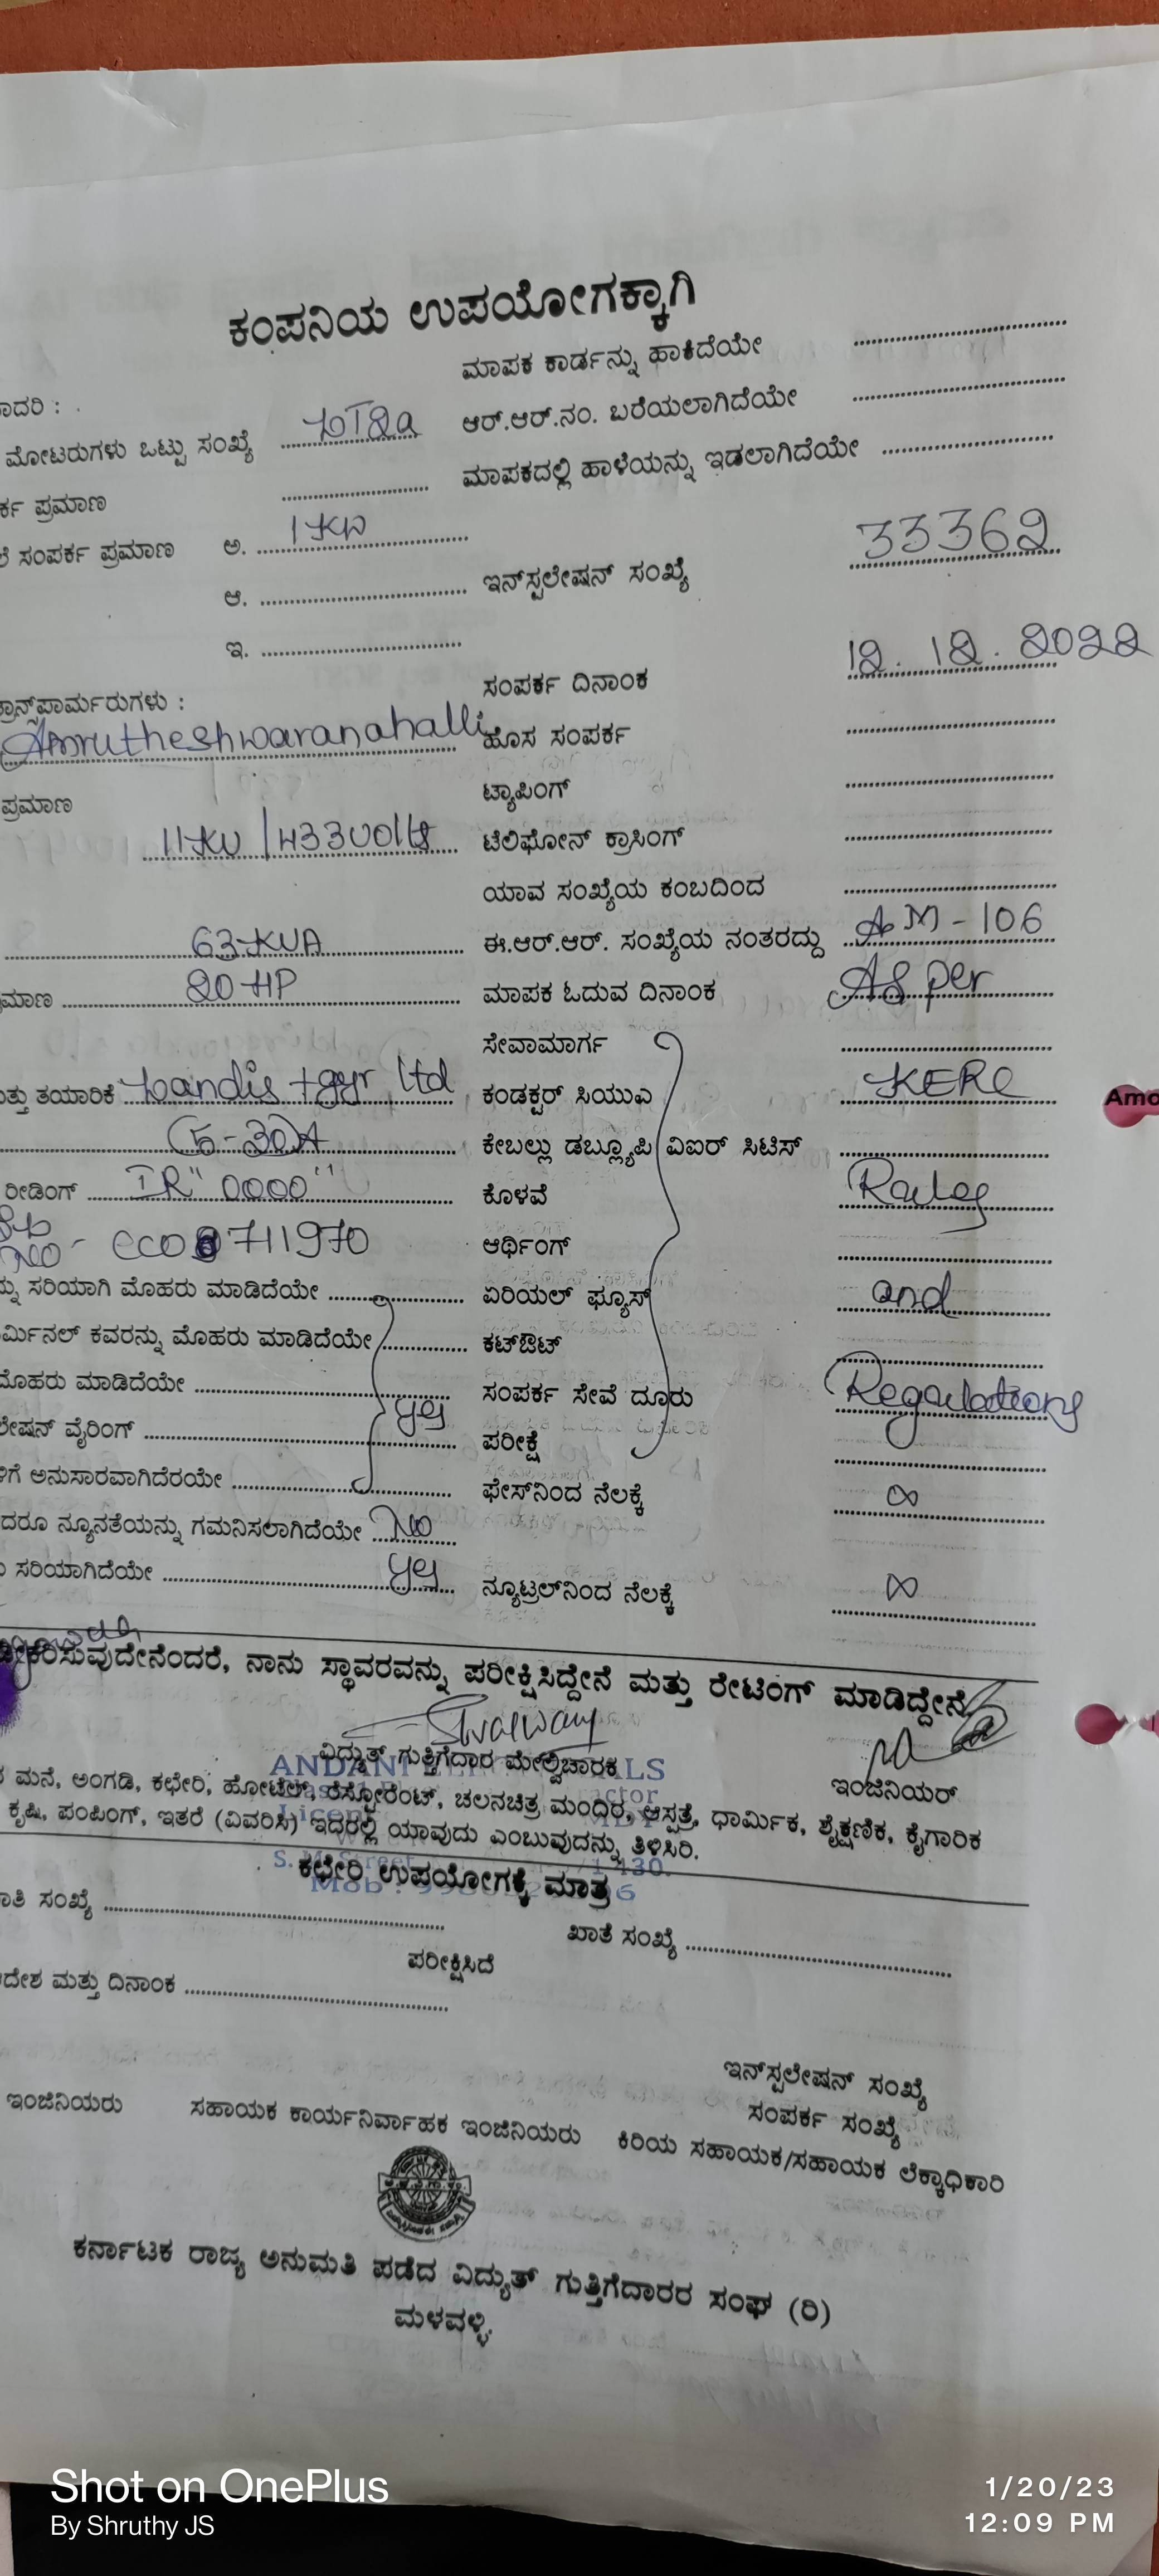 ಕಂಪನಿಯ ಉಪಯೋಗಕ್ಕಾಗಿ
ಮಾಪಕ ಕಾರ್ಡನ್ನು ಹಾಕಿದೆಯೇ
ಾದರಿ :
ಮೋಟರುಗಳು ಒಟ್ಟು ಸಂಖ್ಯೆ LT2a ಆರ್.ಆರ್.ನಂ. ಬರೆಯಲಾಗಿದೆಯೇ
ರ್ಕ ಪ್ರಮಾಣ ಮಾಪಕದಲ್ಲಿ ಹಾಳೆಯನ್ನು ಇಡಲಾಗಿದೆಯೇ
ಸಂಪರ್ಕ ಪ್ರಮಾಣ ಅ. 1 KW
ಆ. ಇನ್‌ಸ್ಟಲೇಷನ್ ಸಂಖ್ಯೆ 33362
ಇ.
ಸಂಪರ್ಕ ದಿನಾಂಕ 12.12.2022
ರಾನ್ಸ್‌ಪಾರ್ಮರುಗಳು :
Amrutheshwaranahalli ಹೊಸ ಸಂಪರ್ಕ
ಪ್ರಮಾಣ ಟ್ಯಾಪಿಂಗ್
11KV/433Volts ಟೆಲಿಫೋನ್ ಕ್ರಾಸಿಂಗ್
ಯಾವ ಸಂಖ್ಯೆಯ ಕಂಬದಿಂದ
63-KVA ಈ.ಆರ್.ಆರ್. ಸಂಖ್ಯೆಯ ನಂತರದ್ದು AM-106
ಮಾಣ 20 HP ಮಾಪಕ ಓದುವ ದಿನಾಂಕ As per
ಸೇವಾಮಾರ್ಗ
ತ್ತು ತಯಾರಿಕೆ Landis +gyr Ltd ಕಂಡಕ್ಟರ್ ಸಿಯುಎ KERC
(5-30)A ಕೇಬಲ್ಲು ಡಬ್ಲ್ಯೂಪಿ ವಿಐಆರ್ ಸಿಟಿಸ್
ರೀಡಿಂಗ್ IR "0000" ಕೊಳವೆ Rules
NO - CC08711970 ಆರ್ಥಿಂಗ್
ನ್ನು ಸರಿಯಾಗಿ ಮೊಹರು ಮಾಡಿದೆಯೇ ಏರಿಯಲ್ ಫ್ಯೂಸ್ and
ರ್ಮಿನಲ್ ಕವರನ್ನು ಮೊಹರು ಮಾಡಿದೆಯೇ ಕಟ್‌ಔಟ್
ಮೊಹರು ಮಾಡಿದೆಯೇ yes ಸಂಪರ್ಕ ಸೇವೆ ದೂರು Regulations
ಲೇಷನ್ ವೈರಿಂಗ್ ಪರೀಕ್ಷೆ
ಳಿಗೆ ಅನುಸಾರವಾಗಿದೆರಯೇ ಫೇಸ್‌ನಿಂದ ನೆಲಕ್ಕೆ ∞
ದರೂ ನ್ಯೂನತೆಯನ್ನು ಗಮನಿಸಲಾಗಿದೆಯೇ No
ಸರಿಯಾಗಿದೆಯೇ yes ನ್ಯೂಟ್ರಲ್‌ನಿಂದ ನೆಲಕ್ಕೆ ∞
ೀಕರಿಸುವುದೇನೆಂದರೆ, ನಾನು ಸ್ಥಾವರವನ್ನು ಪರೀಕ್ಷಿಸಿದ್ದೇನೆ ಮತ್ತು ರೇಟಿಂಗ್ ಮಾಡಿದ್ದೇನೆ
ವಿದ್ಯುತ್ ಗುತ್ತಿಗೆದಾರ ಮೇಲ್ವಿಚಾರಕ ಇಂಜಿನಿಯರ್
ಮನೆ, ಅಂಗಡಿ, ಕಛೇರಿ, ಹೋಟೆಲ್, ರೆಸ್ಟೋರೆಂಟ್, ಚಲನಚಿತ್ರ ಮಂದಿರ, ಆಸ್ಪತ್ರೆ, ಧಾರ್ಮಿಕ, ಶೈಕ್ಷಣಿಕ, ಕೈಗಾರಿಕ
ಕೃಷಿ, ಪಂಪಿಂಗ್, ಇತರೆ (ವಿವರಿಸಿ) ಇದರಲ್ಲಿ ಯಾವುದು ಎಂಬುವುದನ್ನು ತಿಳಿಸಿರಿ.
ಕಛೇರಿ ಉಪಯೋಗಕ್ಕೆ ಮಾತ್ರ
ಾತಿ ಸಂಖ್ಯೆ ಖಾತೆ ಸಂಖ್ಯೆ
ಪರೀಕ್ಷಿಸಿದೆ
ದೇಶ ಮತ್ತು ದಿನಾಂಕ
ಇನ್‌ಸ್ಟಲೇಷನ್ ಸಂಖ್ಯೆ
ಸಂಪರ್ಕ ಸಂಖ್ಯೆ
ಇಂಜಿನಿಯರು ಸಹಾಯಕ ಕಾರ್ಯನಿರ್ವಾಹಕ ಇಂಜಿನಿಯರು ಕಿರಿಯ ಸಹಾಯಕ/ಸಹಾಯಕ ಲೆಕ್ಕಾಧಿಕಾರಿ
ಕರ್ನಾಟಕ ರಾಜ್ಯ ಅನುಮತಿ ಪಡೆದ ವಿದ್ಯುತ್ ಗುತ್ತಿಗೆದಾರರ ಸಂಘ (ರಿ)
ಮಳವಳ್ಳಿ
Shot on OnePlus
By Shruthy JS
1/20/23
12:09 PM